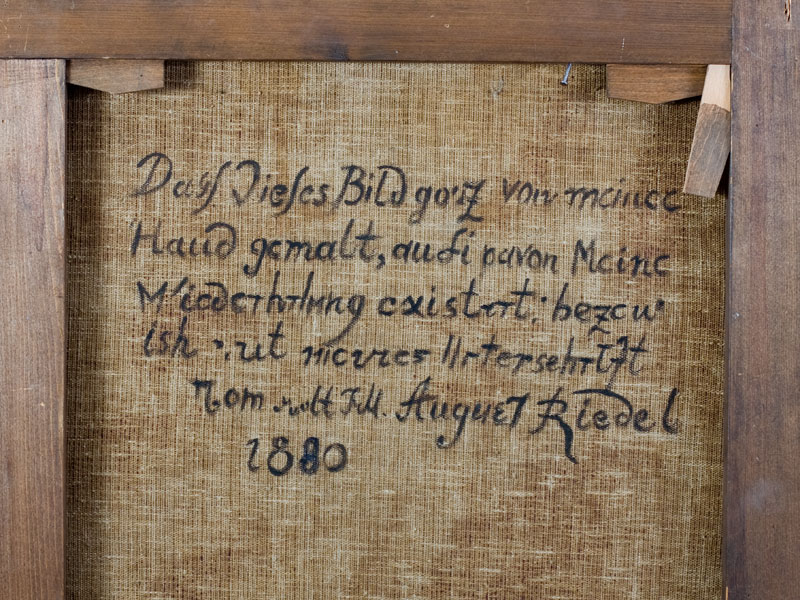 Dass Dieses Bild ganz von meiner
Hand gemalt, auch davon Meine
Wiederholung existirt; bezeu
ish mit meiner Unterschrift
Rom August Riedel
1880